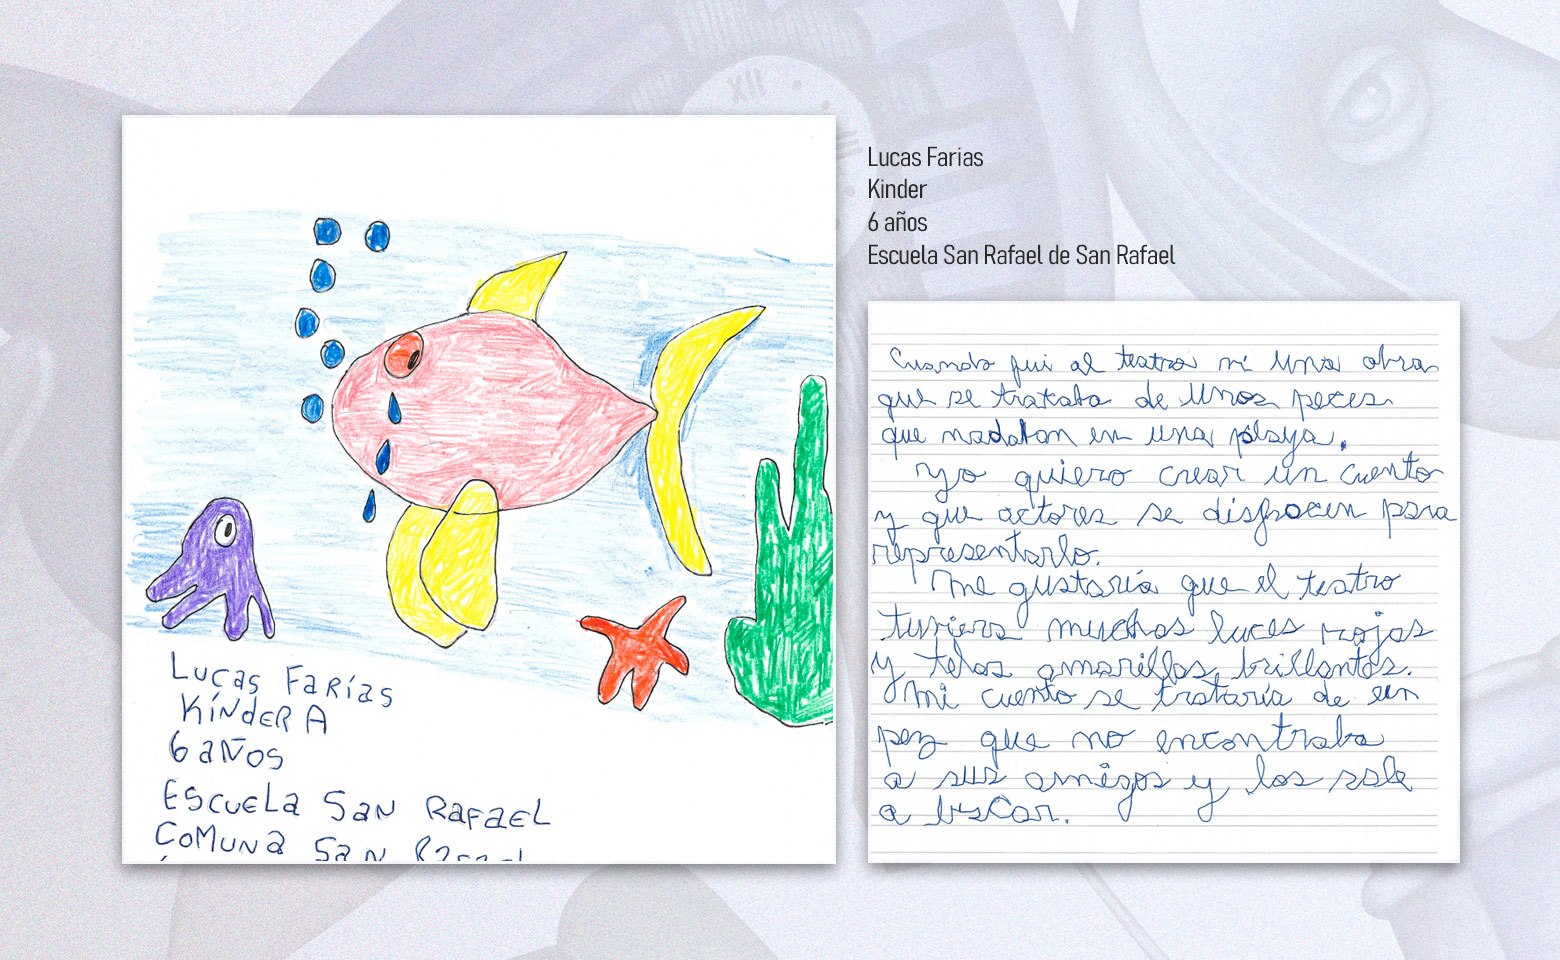 XII
Lucas Farias
Kinder
6 años
Escuela San Rafael de San Rafael
Lucas Farías
Kínder A
6 años
Escuela San Rafael
Comuna San Rafael
Cuando fui al teatro vi una obra
que se trataba de unos peces
que nadaban en una playa.
Yo quiero crear un cuento
y que actores se disfrocen para
representarlo.
Me gustaría que el teatro
tuviera muchas luces rojas
y telas amarillas brillantes.
Mi cuento se trataría de un
pez que no encontraba
a sus amigos y los sale
a buscar.